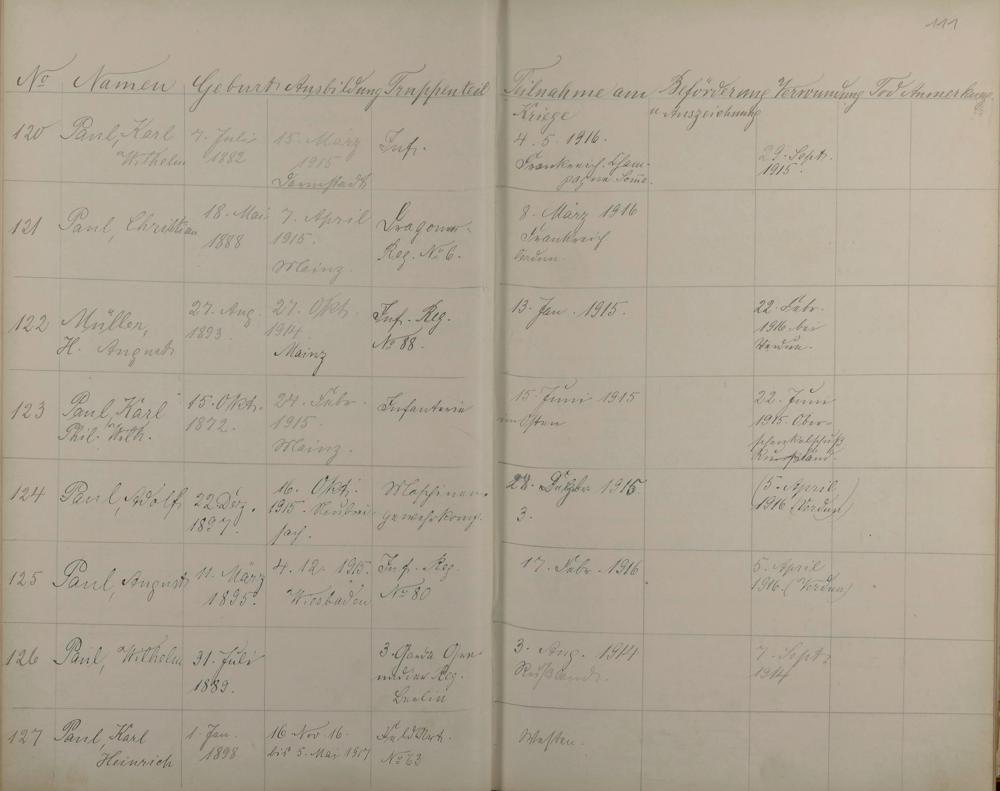 111
No Namen Geburt Ausbildung Truppenteil Teilnahme am Beförderung Verwundung Tod Anmerkung
Kriege u. Auszeichnung
120 Paul, Karl 7. Juli 15. März Inf. 4. 5. 1916. 29. Sept.
Wilhelm 1882 1915 Frankreich. Cham- 1915.
Darmstadt pagne Somme.
121 Paul, Christian 18. Mai 7. April Dragoner- 8. März 1916
1888 1915. Reg. No 6. Frankreich
Mainz. Verdun.
122 Müller, 27. Aug. 27. Okt. Inf. Reg. 13. Jan. 1915. 22. Febr.
H. August 1893. 1914 No 88. 1916 bei
Mainz Verdun.
123 Paul, Karl 15. Okt. 24. Febr. Infanterie 15. Juni 1915 22. Juni
Phil. Wilh. 1872. 1915. im Osten 1915. Ober-
Mainz. schenkelschuß
Rußland.
124 Paul, Adolf 22 Dez. 16. Okt. Maschinen- 28. 1915 (5. April
1897. 1915. Neubrei- gewehrkomp. 3. 1916 (Verdun)
sach.
125 Paul, August 11. März 4. 12. 1915. Inf. Reg. 17. Febr. 1916 5. April
1895. Wiesbaden No 80 1916. (Verdun)
126 Paul, Wilhelm 31. Juli 3. Garde Gre- 3. Aug. 1914 7. Sept.
1889. nadier Reg. Rußland. 1914
Berlin
127 Paul, Karl 1. Jan. 16 Nov 16. Feldart. Westen.
Heinrich 1898 bis 5. Mai 1917 No 63